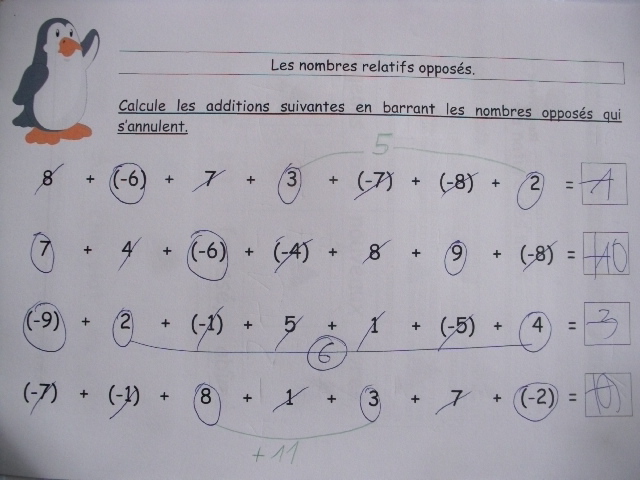 Les nombres relatifs opposés.
Calcule les additions suivantes en barrant les nombres opposés qui
s'annulent.
5
8 + (-6) + 7 + 3 + (-7) + (-8) + 2 = -1
7 + 4 + (-6) + (-4) + 8 + 9 + (-8) = +10
(-9) + 2 + (-1) + 5 + 1 + (-5) + 4 = -3
6
(-7) + (-1) + 8 + 1 + 3 + 7 + (-2) =
+11